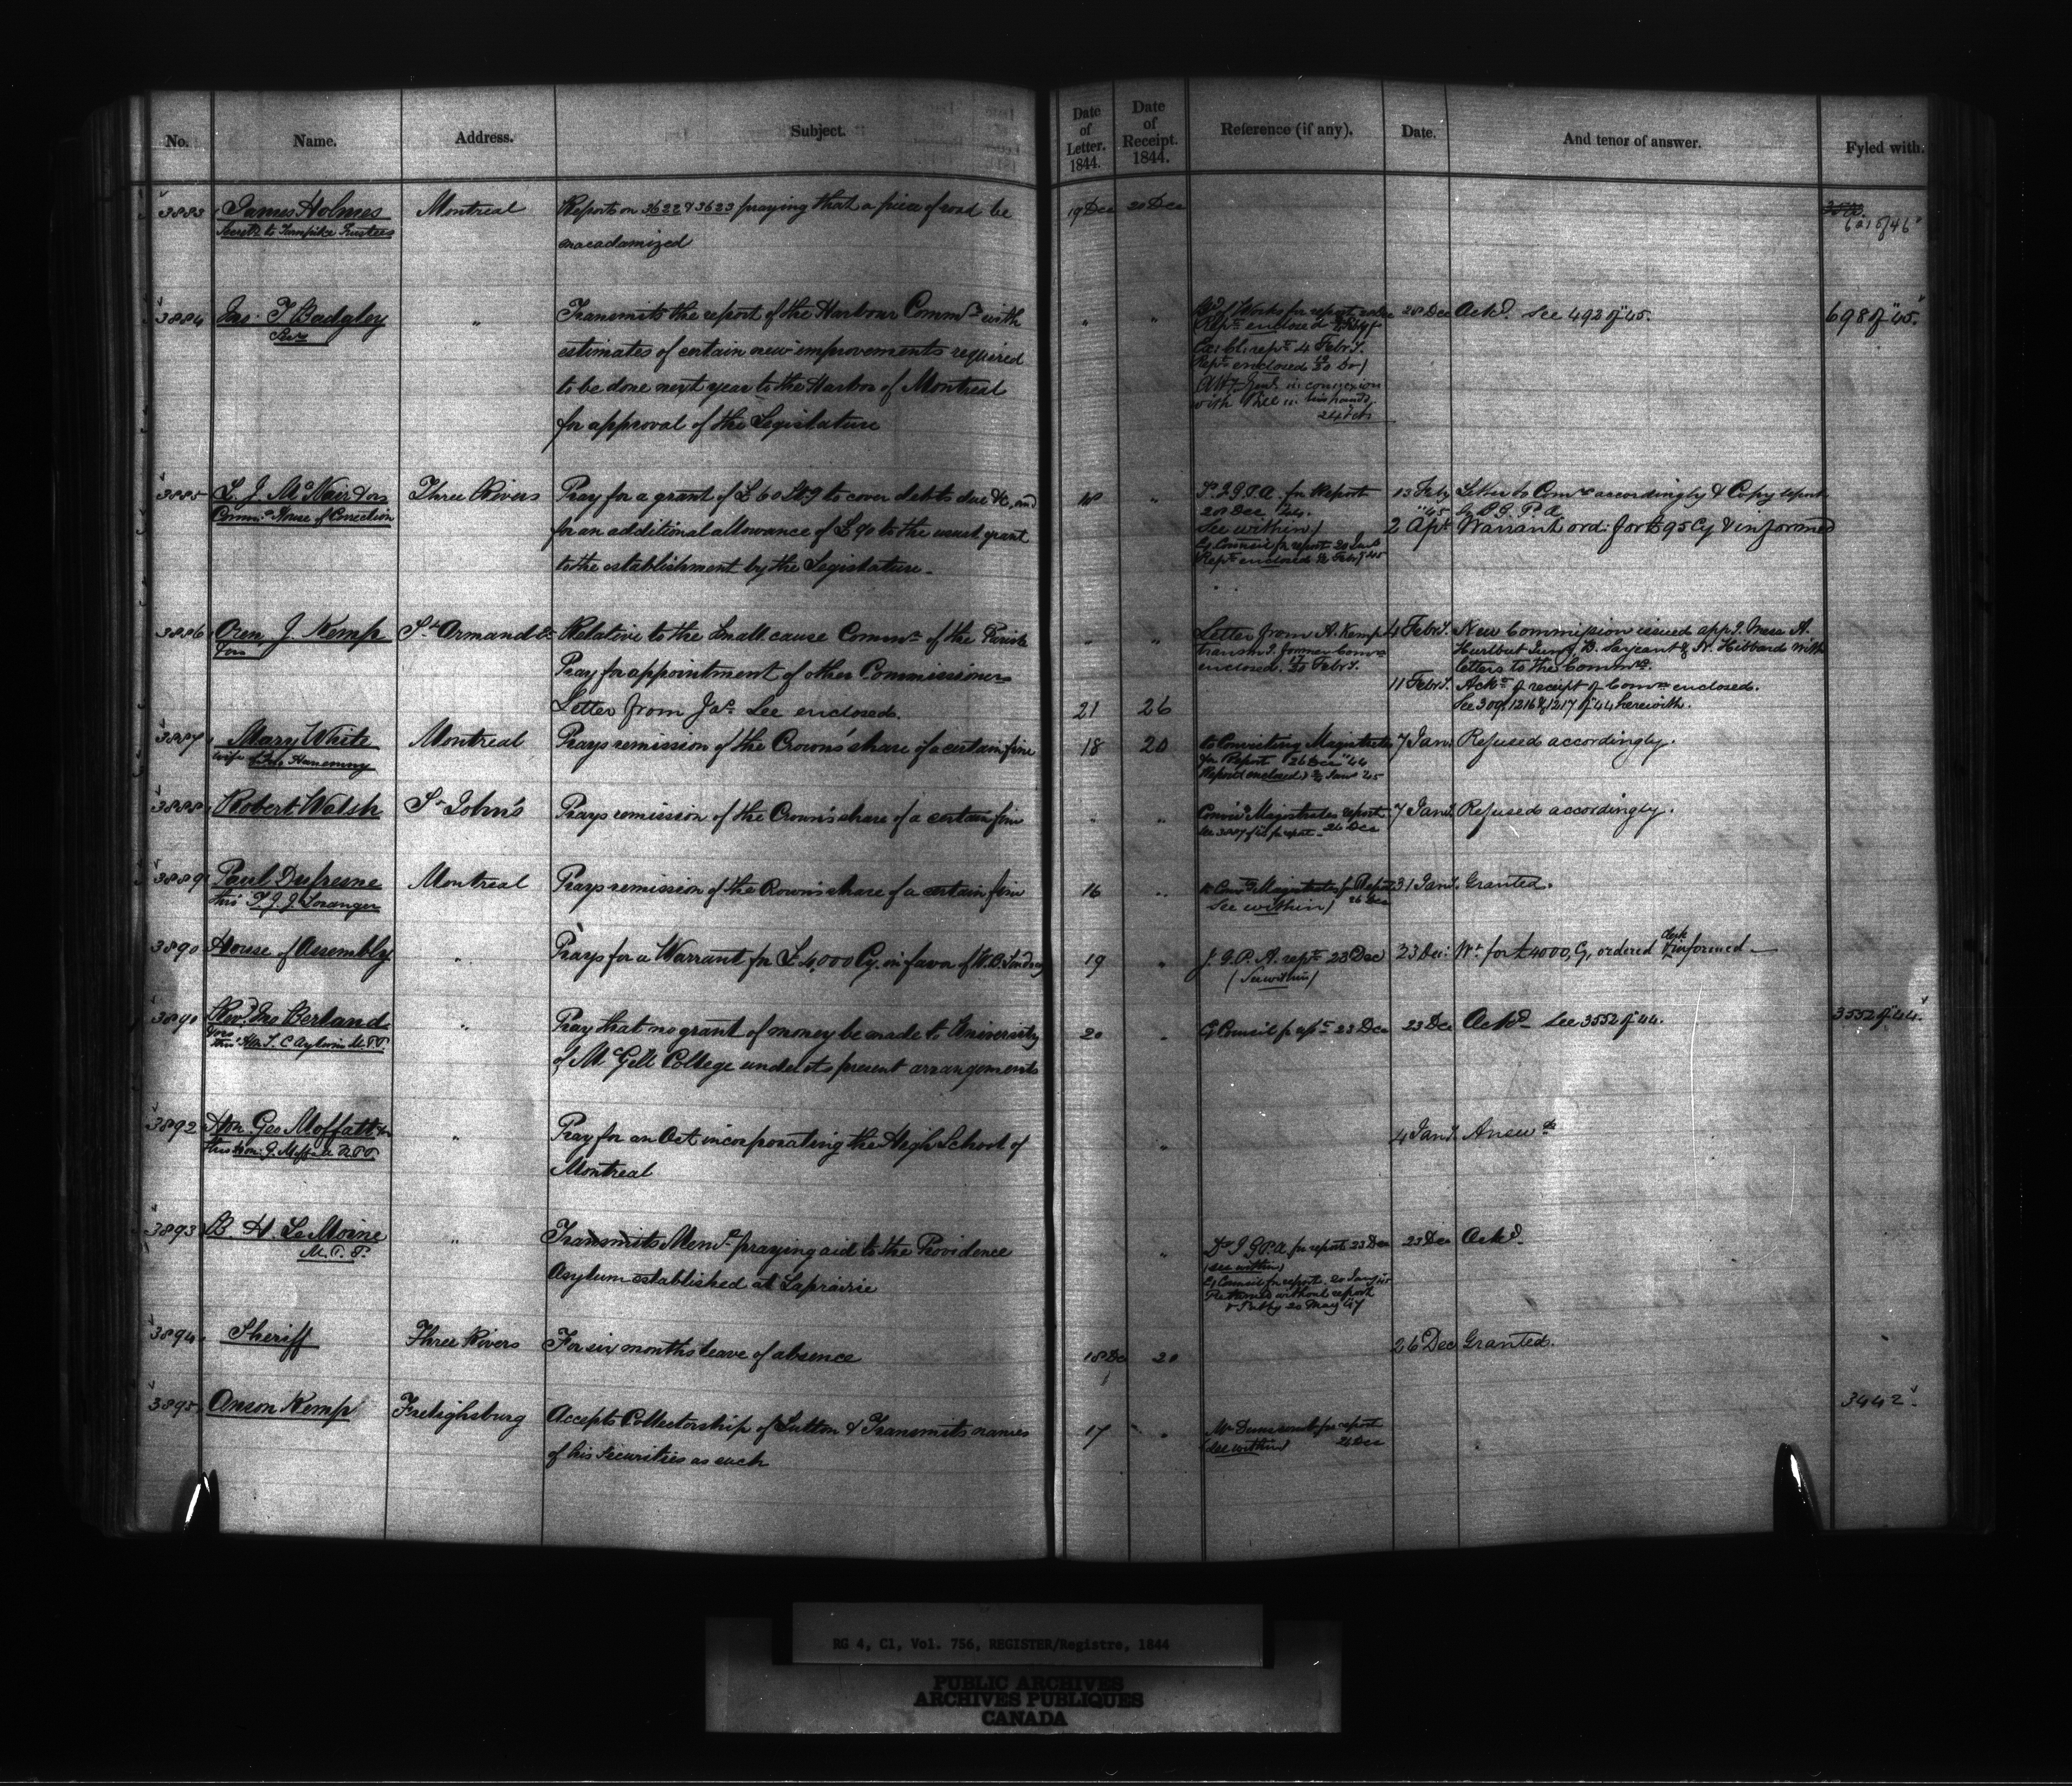 No. Name. Address. Subject. Date of Letter. 1844. Date of Receipt. 1844. Reference (if any). Date. And tenor of answer. Fyled with.
3883 James Holmes Montreal Reports on 3622 & 3623 praying that a piece of road be 19 Dec 20 Dec
Secrety to Turnpike Trustees macadamized 6215 of 46
3884 Jno. T Badgley " Transmits the report of the Harbour Commrs with " " Bd of Works for report 28 Dec Ackd. See 492 of "45. 698 of "45.
Secy estimates of certain new improvements required Rept enclosed
to be done next year to the Harbor of Montreal Ex: Cl: rept 4 Febry.
for approval of the Legislature Rept enclosed
Atty Genl in connexion
with Bill in his hands
24 Feb
3885 L. J. McNair & ors Three Rivers Pray for a grant of £60 Stg to cover debts due &c, and 18 " To I.G.P.A. for Report 13 Feby Letter to Comrs accordingly & Copy report
Commrs House of Correction for an additional allowance of £90 to the usual grant 20 Dec "44. "45 by I.G.P.A.
to the establishment by the Legislature. See within) 2 Apl. Warrant ord: for £95 Cy & informed
Ex Council for report 20 Jany
Rept enclosed Feby 45
3886 Oren J. Kemp St Armand E. Relative to the Small cause Commrs of the Parish " " Letter from A. Kemp 4 Febry. New Commission issued appg. Messrs A.
& ors Pray for appointment of other Commissioners transmg. former Comn Hurlbut Junr, B. Sargeant & W. Hibbard with
Letter from Jas. Lee enclosed. 21 26 enclosed. Febry. letters to the Commrs.
11 Febry. Ackt of receipt of Comn enclosed.
See 309, 1216 & 1217 of 44 herewith.
3887 Mary White Montreal Prays remission of the Crown's share of a certain fine 18 20 to Convicting Magistrates 7 Jany. Refused accordingly.
wife of Jno. for Report 26 Dec "44
Report enclosed Jany 45
3888 Robert Walsh St John's Prays remission of the Crown's share of a certain fine " " Convicg Magistrates report 7 Jany. Refused accordingly.
26 Dec
3889 Paul Dufresne Montreal Prays remission of the Crown's share of a certain fine 16 " to Convg Magistrates for Report 31 Jany. Granted.
thro' T. J. J. Loranger See within) 26 Dec
3890 House of Assembly " Prays for a Warrant for £4,000 Cy. in favor of W. B. Lindsay 19 " I. G. P. A. rept 23 Dec 23 Dec: Wt for £4000, Cy, ordered & Clerk informed
(See within)
3890 Revd. Jno Berland " Pray that no grant of money be made to University 20 " Ex Council for rept 23 Dec 23 Dec Ackd See 3552 of 44. 3552 of "44.
& ors of McGill College under its present arrangements
thro' Hon T. C Aylwin M.P.P.
3892 Hon. Geo Moffatt & Pray for an Act incorporating the High School of " 4 Jany. Answd
thro Hon. G. Moffatt M.P.P. Montreal
3893 B. H. Le Moine " Transmits Meml praying aid to the Providence " Dy I G P A for report 23 Dec 23 Dec Ackd.
M.P.P. Asylum established at Laprairie (See within)
Ex Council for report. 20 Jany 45
Returned without report
20 May 47
3894 Sheriff Three Rivers For six months leave of absence 18 Dec 20 26 Dec Granted.
3895 Anson Kemp Frelighsburg Accepts Collectorship of Sutton & Transmits names 17 " Mr Dunscomb for report 3442.
of his Securities as such (See within) 26 Dec
RG 4, C1, Vol. 756, REGISTER/Registre, 1844
PUBLIC ARCHIVES
ARCHIVES PUBLIQUES
CANADA